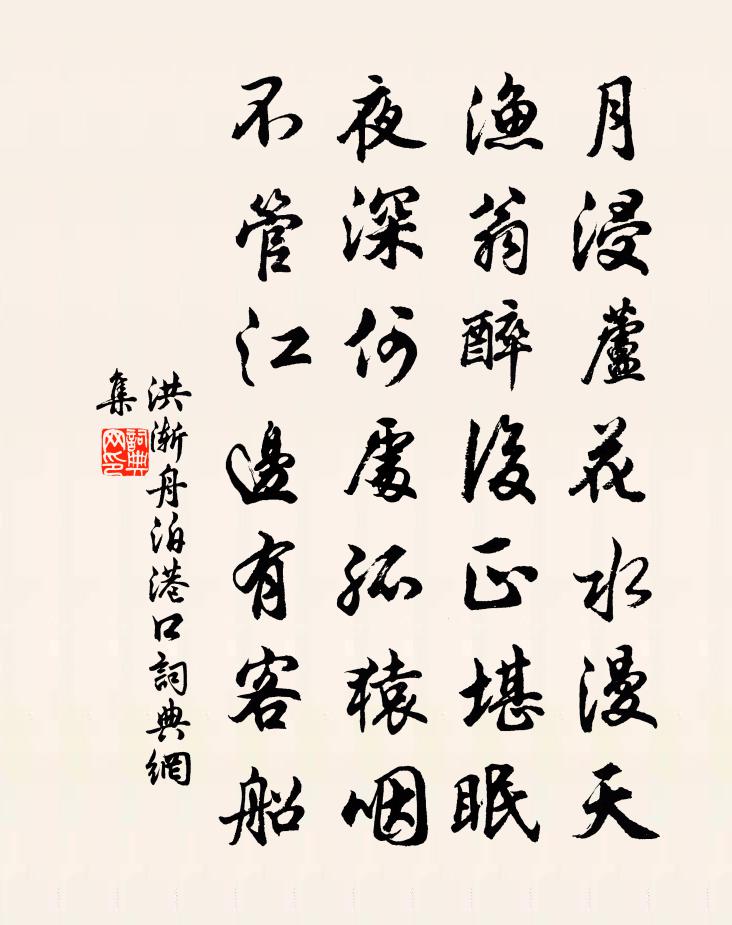 月浸蘆花水漫天
漁翁醉後正堪眠
夜深何處孤猿咽
不管江邊有客船
洪漸舟泊港口詞典網
集
詞典
网印